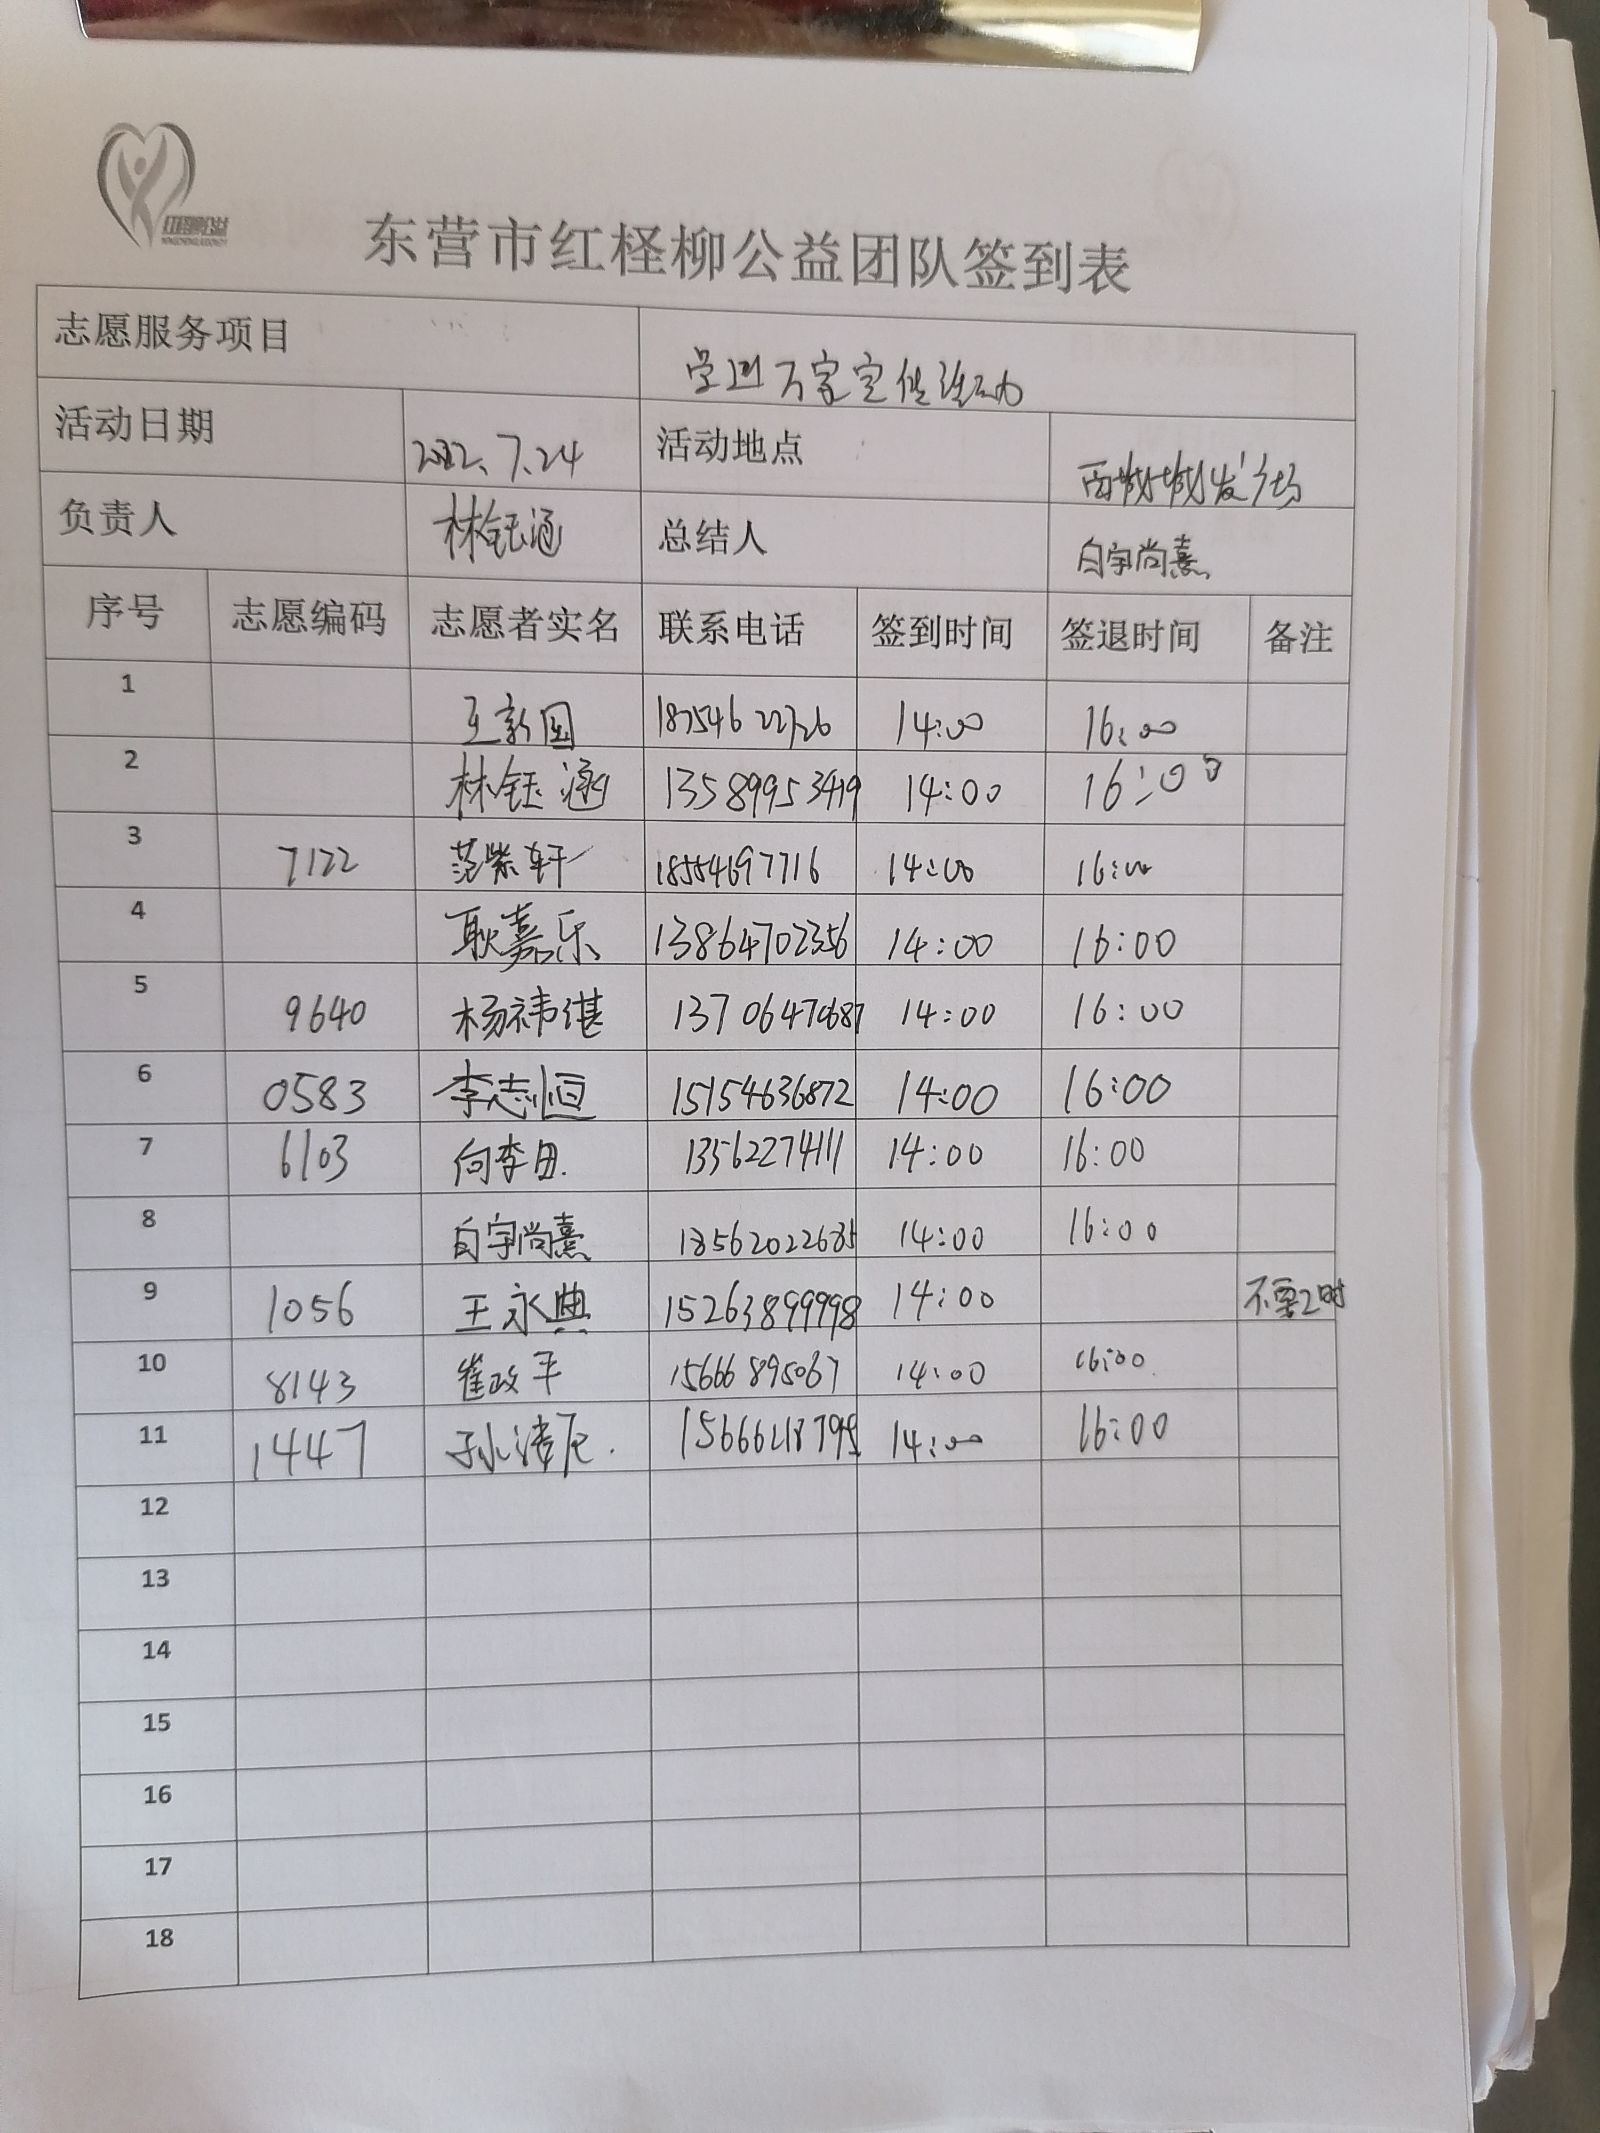 红柽柳公益
东营市红柽柳公益团队签到表
志愿服务项目 宣进万家宣传活动
活动日期 2022.7.24 活动地点 西城城发广场
负责人 林钰涵 总结人 白宇尚熹
序号 志愿编码 志愿者实名 联系电话 签到时间 签退时间 备注
1 王新国 14:00 16:00
2 林钰涵 13589953419 14:00 16:00
3 7122 范紫轩 18554697716 14:00 16:00
4 耿嘉乐 13864702356 14:00 16:00
5 9640 杨祎谌 13706470687 14:00 16:00
6 0583 李志恒 15154636872 14:00 16:00
7 6103 向李田 13562274111 14:00 16:00
8 白宇尚熹 18562022685 14:00 16:00
9 1056 王永典 15263899998 14:00 不要工时
10 8143 崔政平 15666895067 14:00 16:00
11 1447 孙 14:00 16:00
12
13
14
15
16
17
18